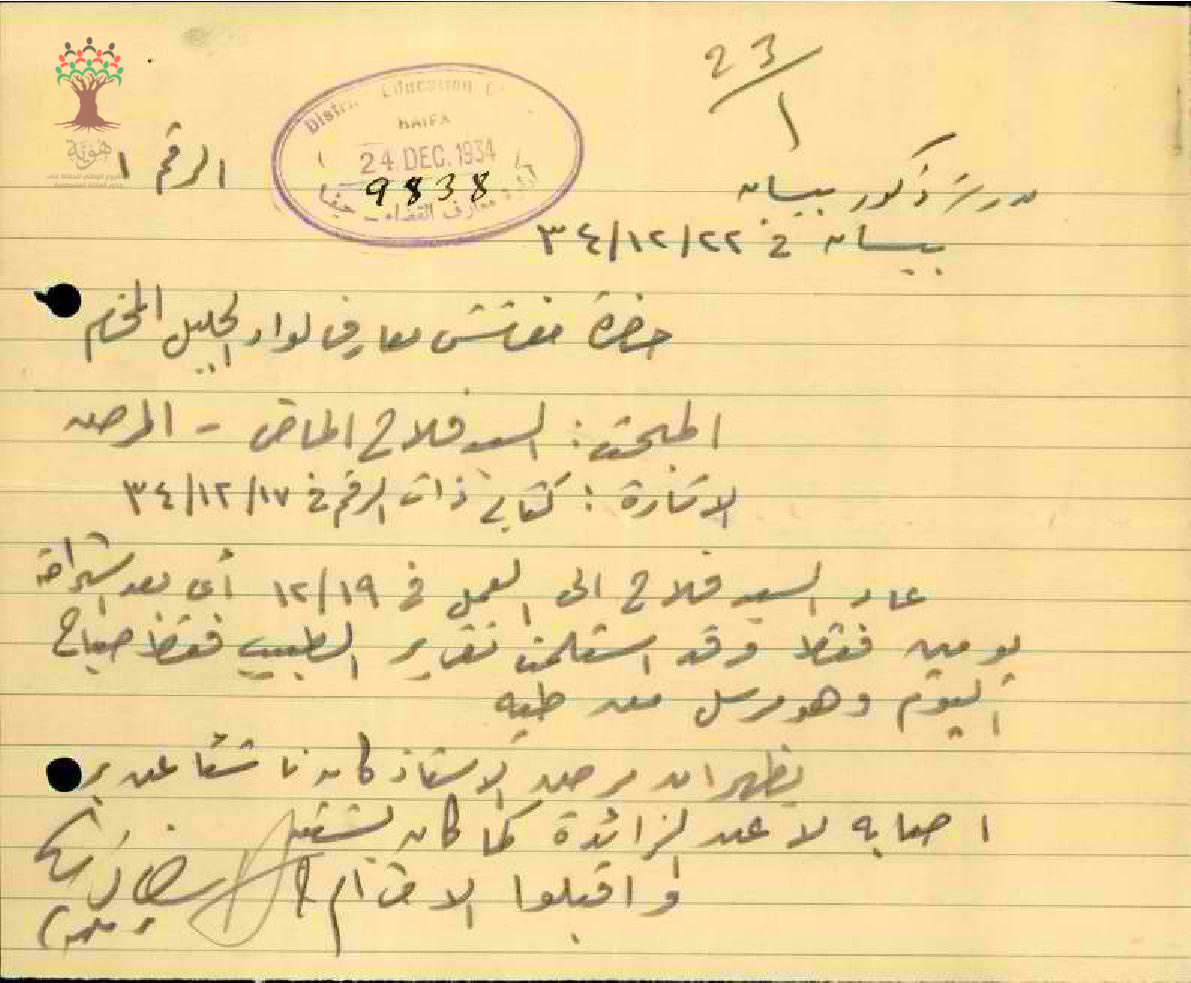 23/1
District Education
HAIFA
24 DEC. 1934
9838
دائرة معارف القضاء - حيفا
هوية
الرقم ١
مدرسة ذكور بيسان
بيسان في ٣٤/١٢/٢٢
حضرة مفتش معارف لواء الجليل المحترم
المبحث : السيد فلاح الماضي - المرض
الاشارة : كتابي ذات الرقم في ٣٤/١٢/١٧
عاد السيد فلاح الى العمل في ١٢/١٩ أي بعد استراحة
يومين فقط وقد استلمت تقرير الطبيب فقط صباح
اليوم وهو مرسل معه طيه
يظهر ان مرض الاستاذ كان ناشئا عن برد
اصابه لا عن الزائدة كما كان يشتبه
واقبلوا الاحترام